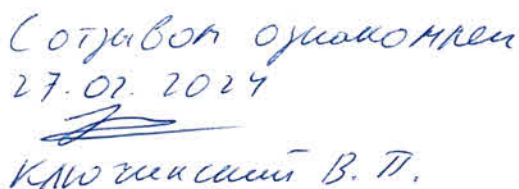 С отзывом ознакомлен
27.02.2024
Ключинский В. П.